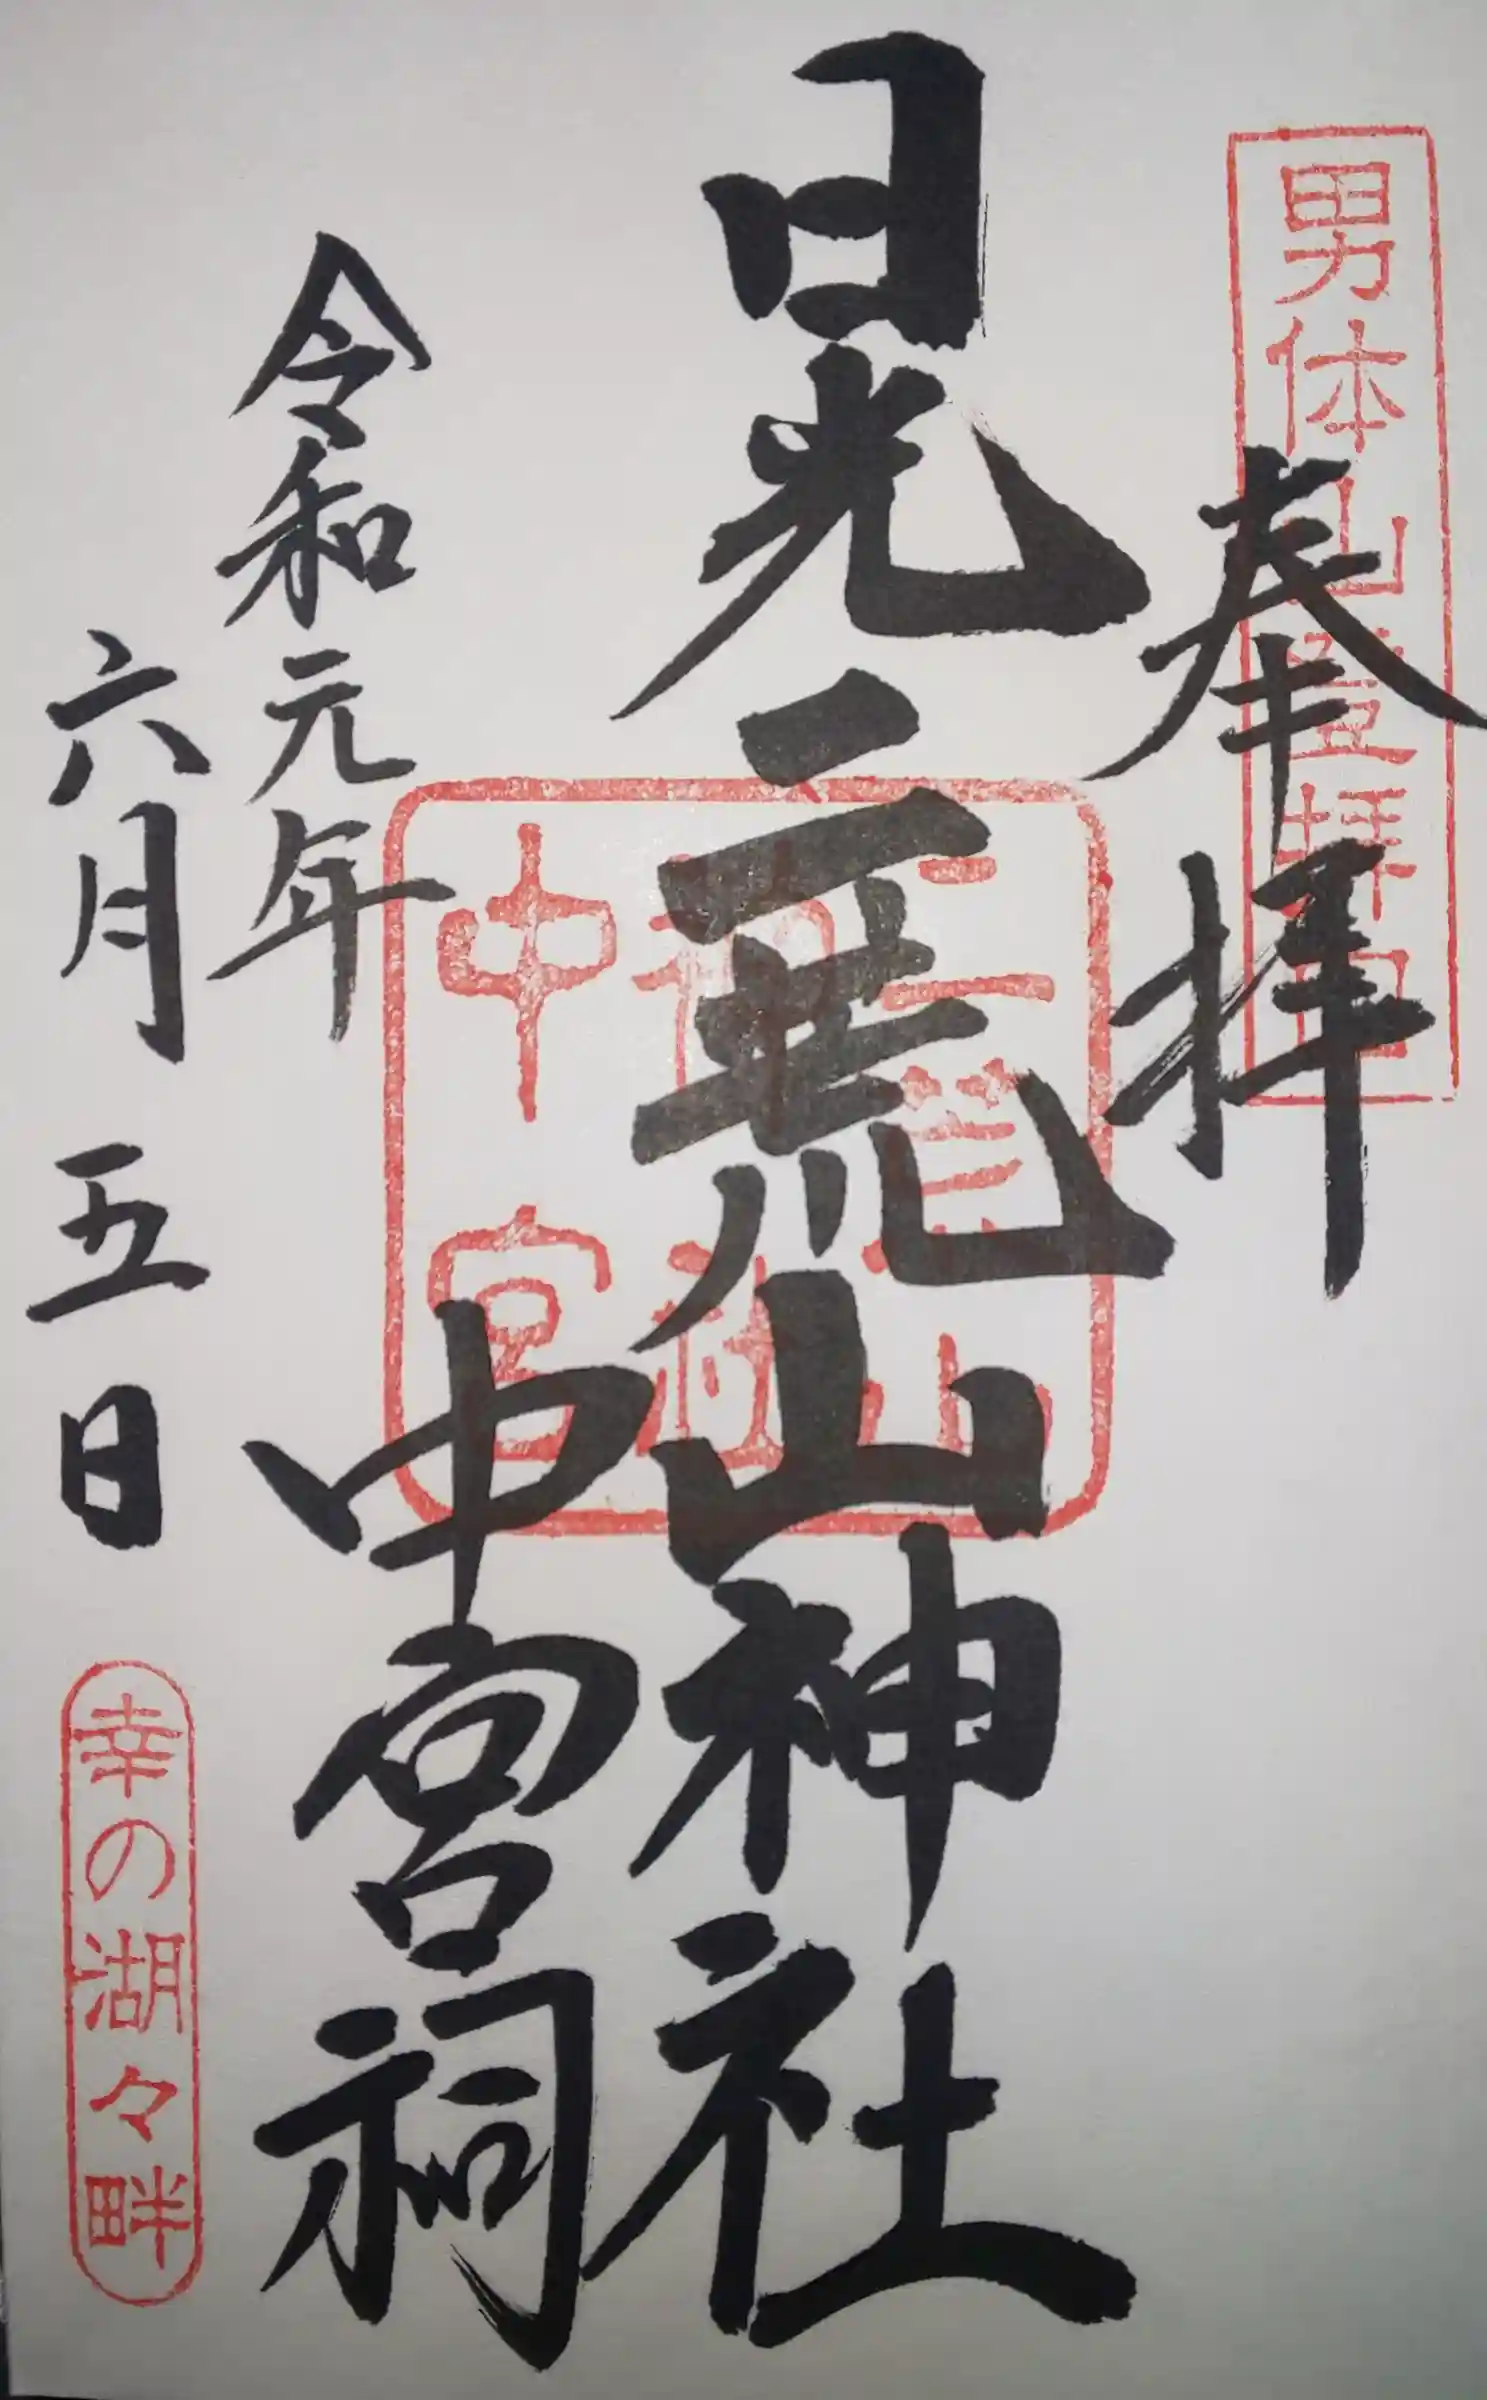 男体山登拝口
奉拝
日光二荒山神社
中宮祠
二荒山
神社
中宮
令和元年
六月五日
幸の湖々畔